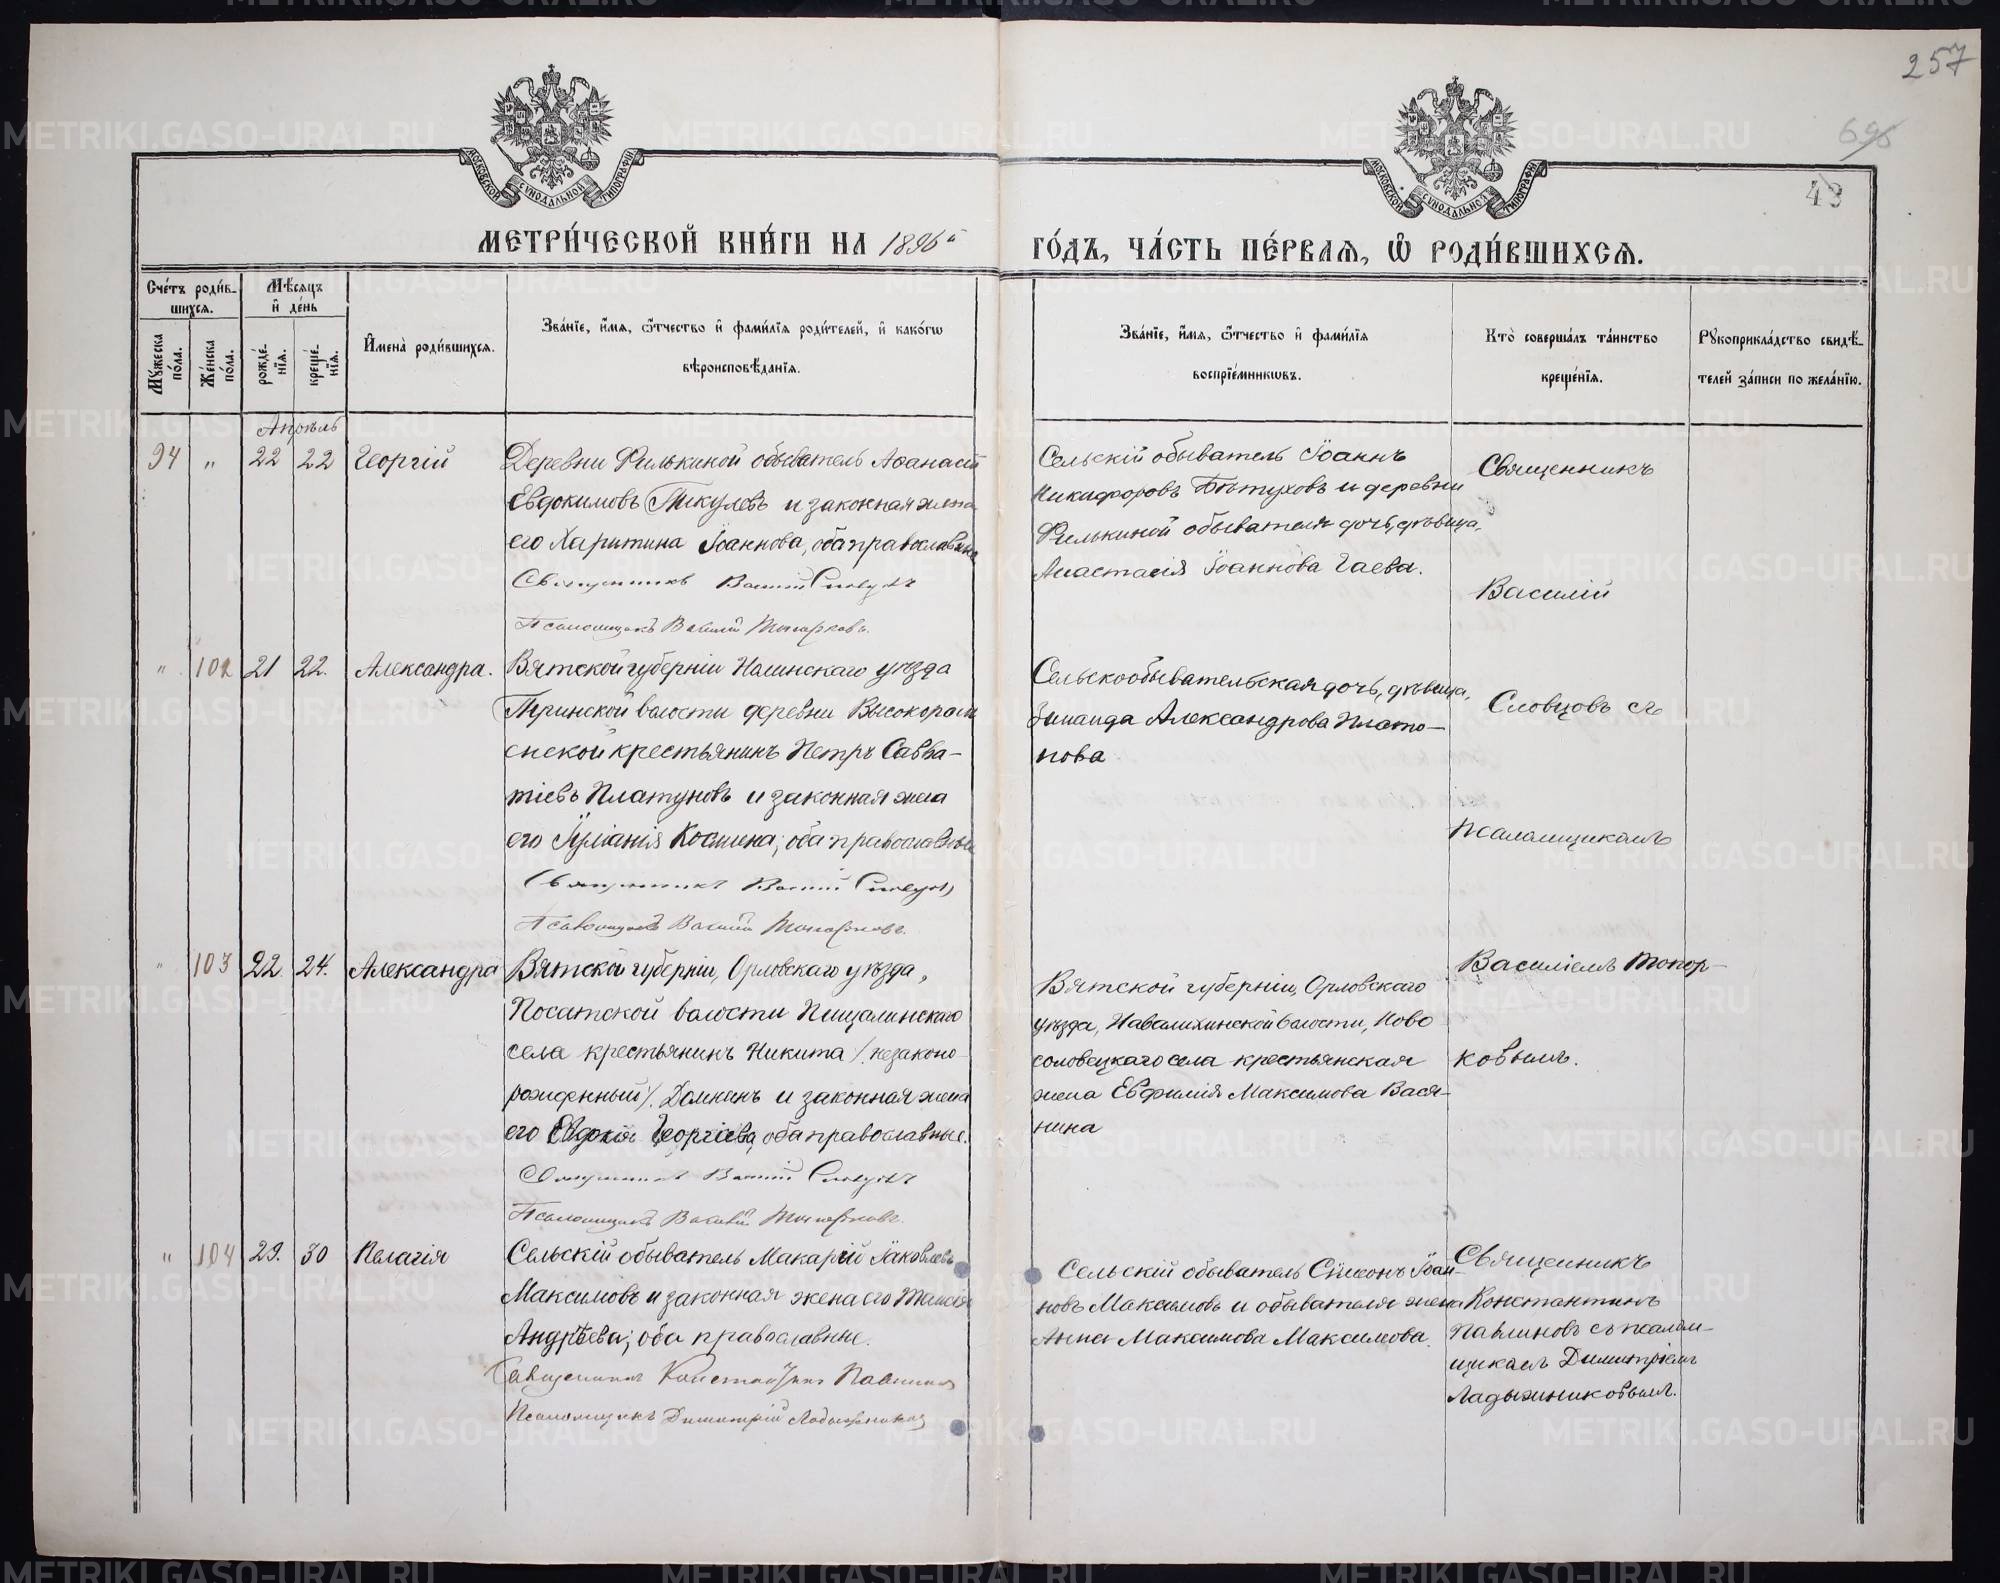 257
696
43
МОСКОВСКОЙ СѴНОДАЛЬНОЙ ТИПОГРАФІИ
МОСКОВСКОЙ СѴНОДАЛЬНОЙ ТИПОГРАФІИ
МЕТРИ́ЧЕСКОЙ КНИ́ГИ НА 1896й
ГО́ДЪ, ЧА́СТЬ ПЕ́РВАѦ, Ѡ҆ РОДИ́ВШИХСѦ.
Сче́тъ роди́в-
шихсѧ.
Мѣ́сѧцъ
и҆ де́нь
Мꙋ́жеска по́ла.
Же́нска по́ла.
рожде́-
нїѧ.
креще́-
нїѧ.
И҆мена̀ роди́вшихсѧ.
Зва́нїе, и҆́мѧ, ѻ҆́тчество и҆ фами́лїѧ роди́телей, и҆ како́гѡ
вѣроисповѣ́данїѧ.
Зва́нїе, и҆́мѧ, ѻ҆́тчество и҆ фами́лїѧ
воспрїе́мникѡвъ.
Кто̀ соверша́лъ та́инство
креще́нїѧ.
Рꙋкоприкла́дство свидѣ́-
телей за́писи по жела́нїю.
Апрѣль
94 " 22 22 Георгій
Деревни Филькиной обыватель Аѳанасій
Евдокимовъ Пикулевъ и законная жена
его Харитина Іоаннова, оба православные
Священникъ Василій Словцовъ
Псаломщикъ Василій Топорковъ.
Сельскій обыватель Іоаннъ
Никифоровъ Пѣтуховъ и деревни
Филькиной обывателя дочь, дѣвица,
Анастасія Іоаннова Гаева.
Священникъ
Василій
" 102 21 22. Александра.
Вятской губерніи Нолинскаго уѣзда
Тринской волости деревни Высокорам
енской крестьянинъ Петръ Савва-
тіевъ Платуновъ и законная жена
его Іуліанія Космина; оба православные
Священникъ Василій Словцовъ
Псаломщикъ Василій Топорковъ.
Сельскообывательская дочь, дѣвица,
Зинаида Александрова Плато-
нова
Словцовъ съ
Псаломщикомъ
" 103 22 24. Александра
Вятской губерніи, Орловскаго уѣзда,
Посатской волости Пищалинскаго
села крестьянинъ Никита /незаконо-
рожденный/. Домнинъ и законная жена
его Евдокія Георгіева, оба православные.
Священникъ Василій Словцовъ
Псаломщикъ Василій Топорковъ.
Вятской губерніи, Орловскаго
уѣзда, Навалихинской волости, Ново
соловецкаго села крестьянская
жена Евфимія Максимова Вася-
нина
Василіемъ Топор-
ковымъ.
" 104 29. 30 Пелагія
Сельскій обыватель Макарій Іаковлевъ
Максимовъ и законная жена его Таисія
Андрѣева; оба православные.
Священникъ Константинъ Павлиновъ
Псаломщикъ Димитрій Ладыжниковъ
Сельскій обыватель Сѵмеонъ Іоан-
новъ Максимовъ и обывателя жена
Анна Максимова Максимова.
Священникъ
Константинъ
Павлиновъ съ псалом-
щикомъ Димитріемъ
Ладыжниковымъ.
METRIKI.GASO-URAL.RU